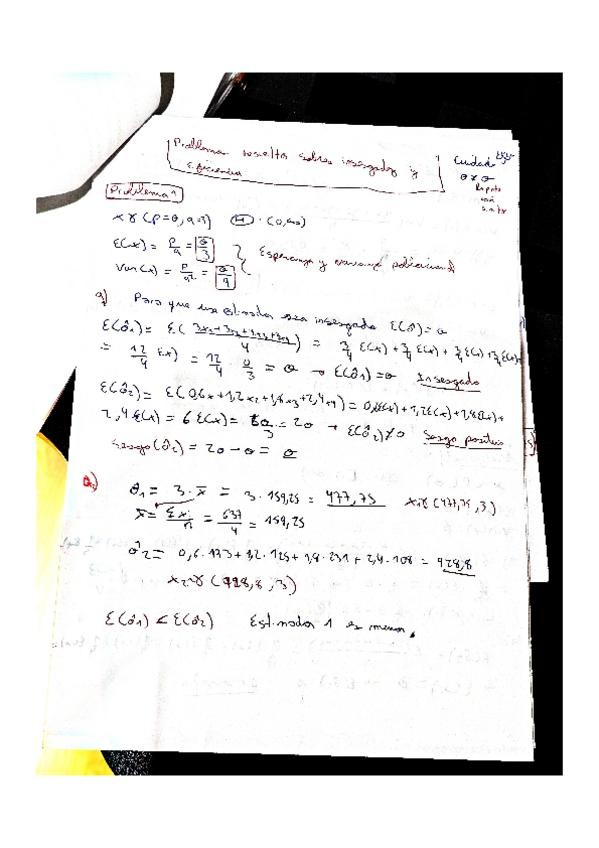 Problemas resueltos sobre insesgadez y
eficiencia
Cuidado
Problema 1
x γ (P=θ, a=3) (H) · (0,∞)
E(x) = P/a = θ/3
Var(x) = P/a² = θ/9
Esperanza y varianza poblacional
a) Para que un estimador sea insesgado E(θ̂)=θ
E(θ̂1) = E( (3x1+3x2+3x3+3x4)/4 ) = 3/4 E(x) + 3/4 E(x) + 3/4 E(x) + 3/4 E(x)
= 12/4 E(x) = 12/4 · θ/3 = θ → E(θ̂1)=θ Insesgado
E(θ̂2) = E(0,6x1+1,2x2+1,8x3+2,4x4) = 0,6E(x)+1,2E(x)+1,8E(x)+
2,4E(x) = 6E(x) = 6θ/3 = 2θ → E(θ̂2)≠θ Sesgo positivo
Sesgo(θ̂2) = 2θ-θ = θ
θ̂1 = 3·x̄ = 3·159,25 = 477,75 x1γ(477,75,3)
x̄ = Σxi/n = 637/4 = 159,25
θ̂2 = 0,6·173+1,2·125+1,8·231+2,4·108 = 928,8
x2γ(928,8,3)
E(θ̂1) < E(θ̂2) Estimador 1 es menor.